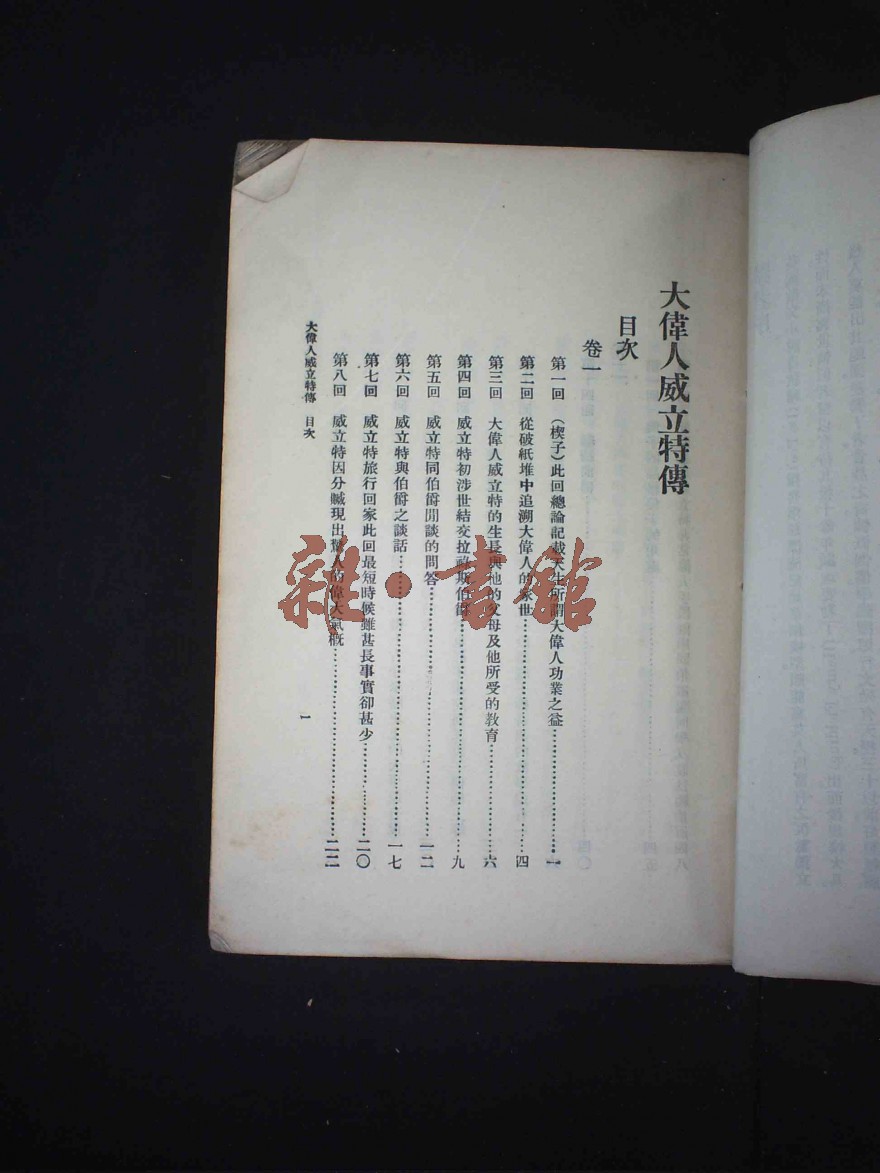 大偉人威立特傳
目次
卷一
第一回 （楔子）此回總論記載天生所謂大偉人功業之益……一
第二回 從破紙堆中追溯大偉人的家世……四
第三回 大偉人威立特的生長與他的父母及他所受的教育……六
第四回 威立特初涉世結交拉祿斯伯爵……九
第五回 威立特同伯爵閒談的問答……一二
第六回 威立特與伯爵之談話……一七
第七回 威立特旅行回家此回最短時候雖甚長事實卻甚少……二〇
第八回 威立特因分贓現出驚人的偉大氣概……二二
大偉人威立特傳 目次
一
雜·書館